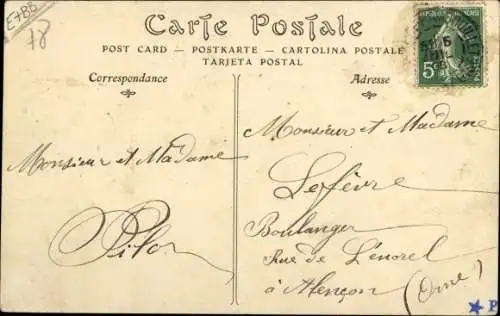 E788
78
Carte Postale
POST CARD — POSTKARTE — CARTOLINA POSTALE
TARJETA POSTAL
Correspondance
Adresse
5c
Monsieur et Madame
Monsieur et Madame
Lefèvre
Boulanger
Rue de
à Alençon (Orne)